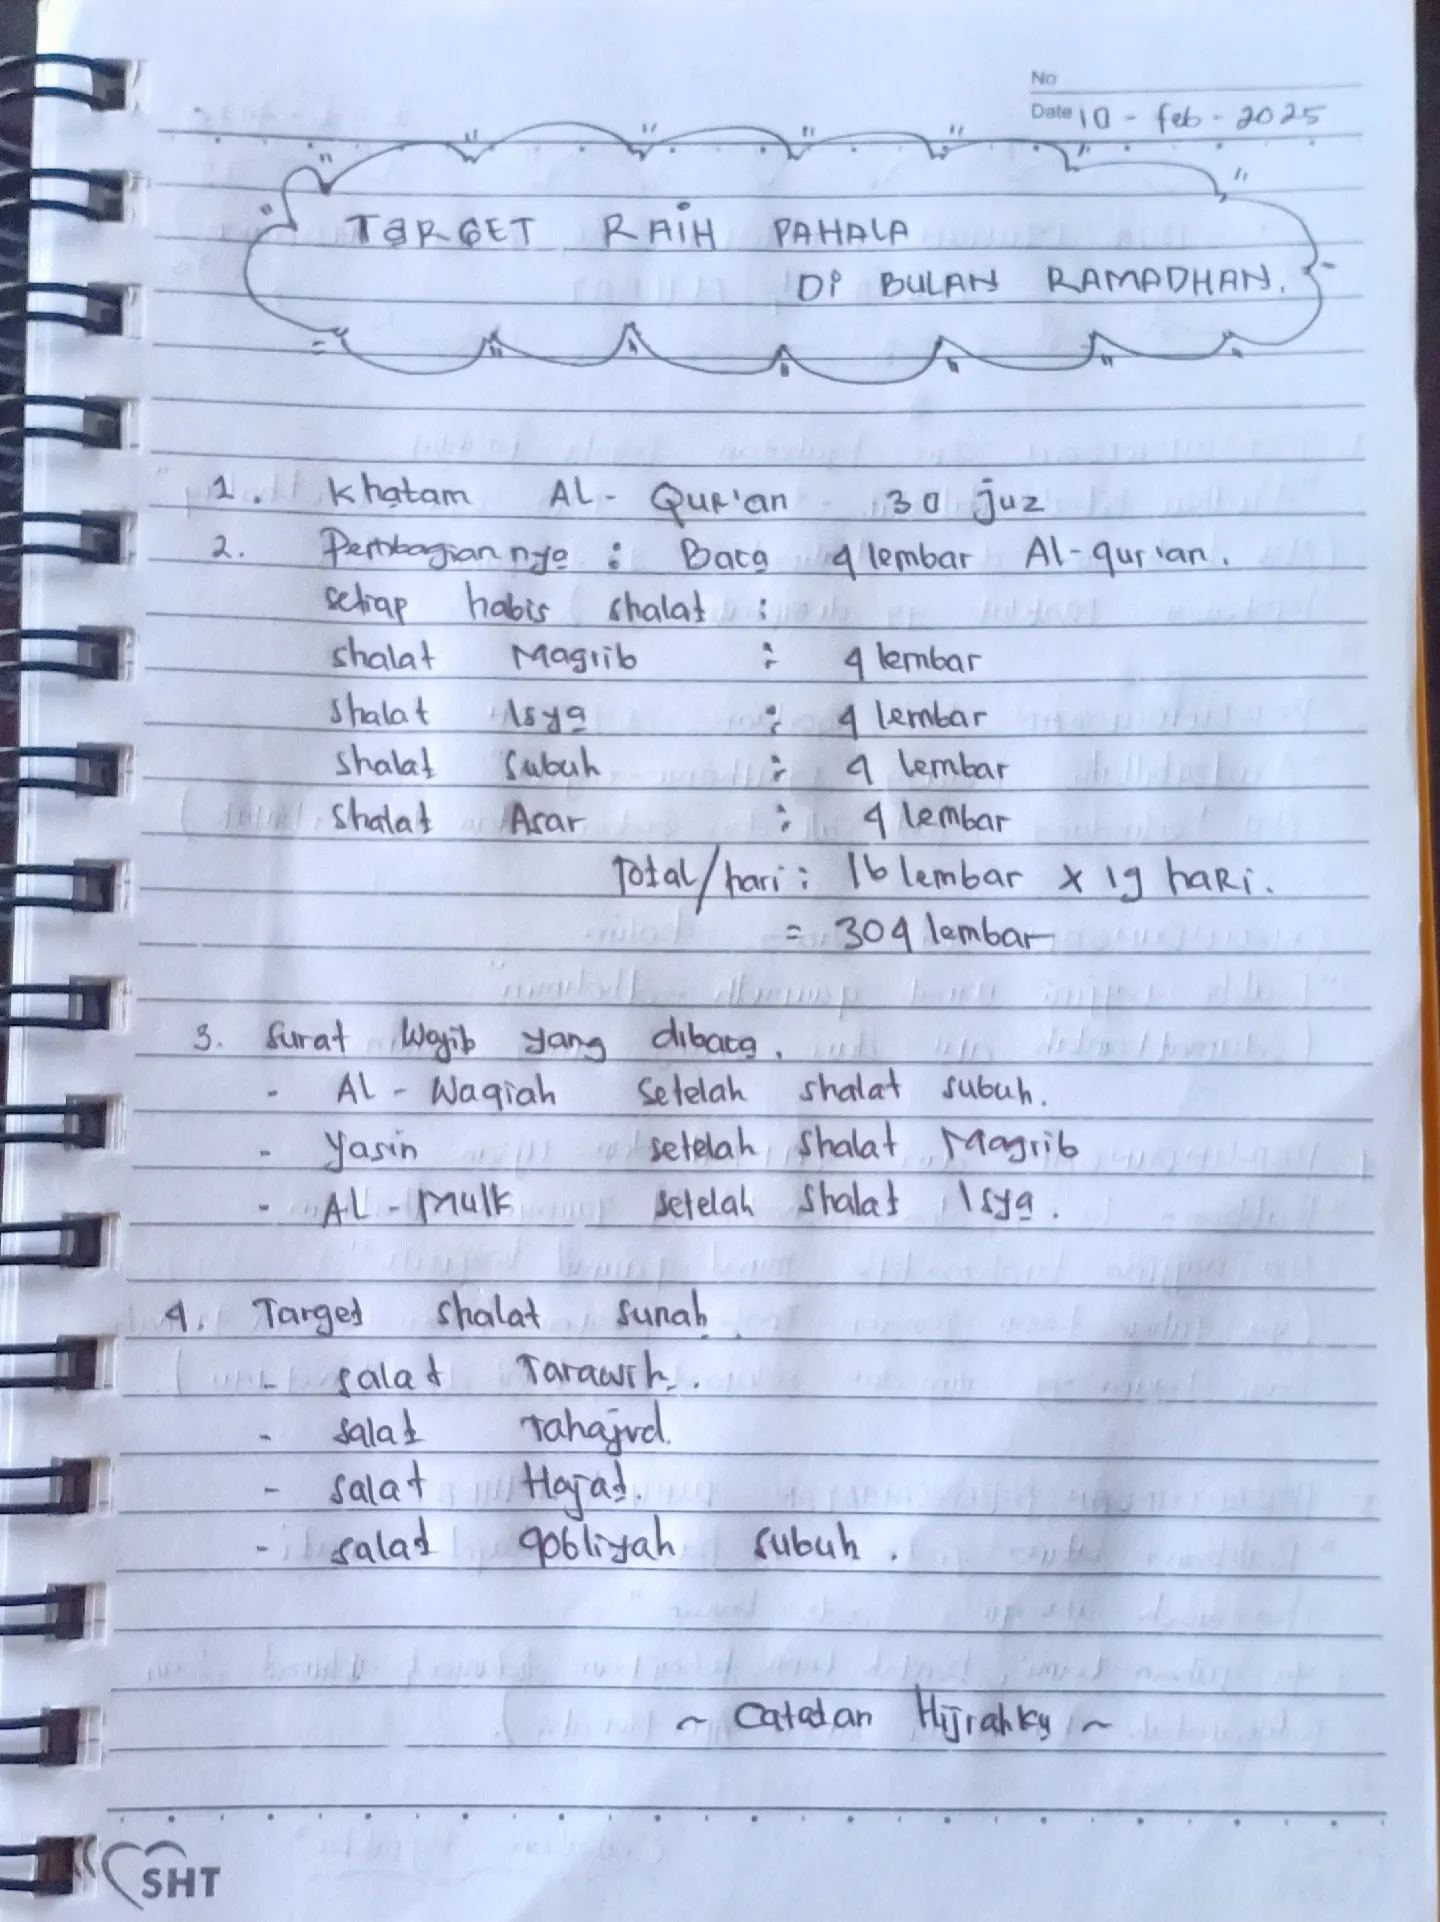 No
Date 10 - feb - 2025
TARGET RAIH PAHALA
Di BULAN RAMADHAN.
1. Khatam AL- Qur'an - 30 juz
2. Pembagian nya : Baca 4 lembar Al-qur'an.
setiap habis shalat :
shalat Magrib : 4 lembar
shalat Isya : 4 lembar
shalat Subuh : 4 lembar
shalat Asar : 4 lembar
Total/hari : 16 lembar x 19 haRi.
= 304 lembar
3. Surat Wajib yang dibaca.
- AL - Waqiah setelah shalat subuh.
- Yasin setelah shalat Magrib
- AL - Mulk setelah shalat Isya.
4. Target shalat sunah.
- salat Tarawih.
- salat Tahajud.
- salat Hajat.
- salat qobliyah subuh.
~ Catatan Hijrahku ~
SHT